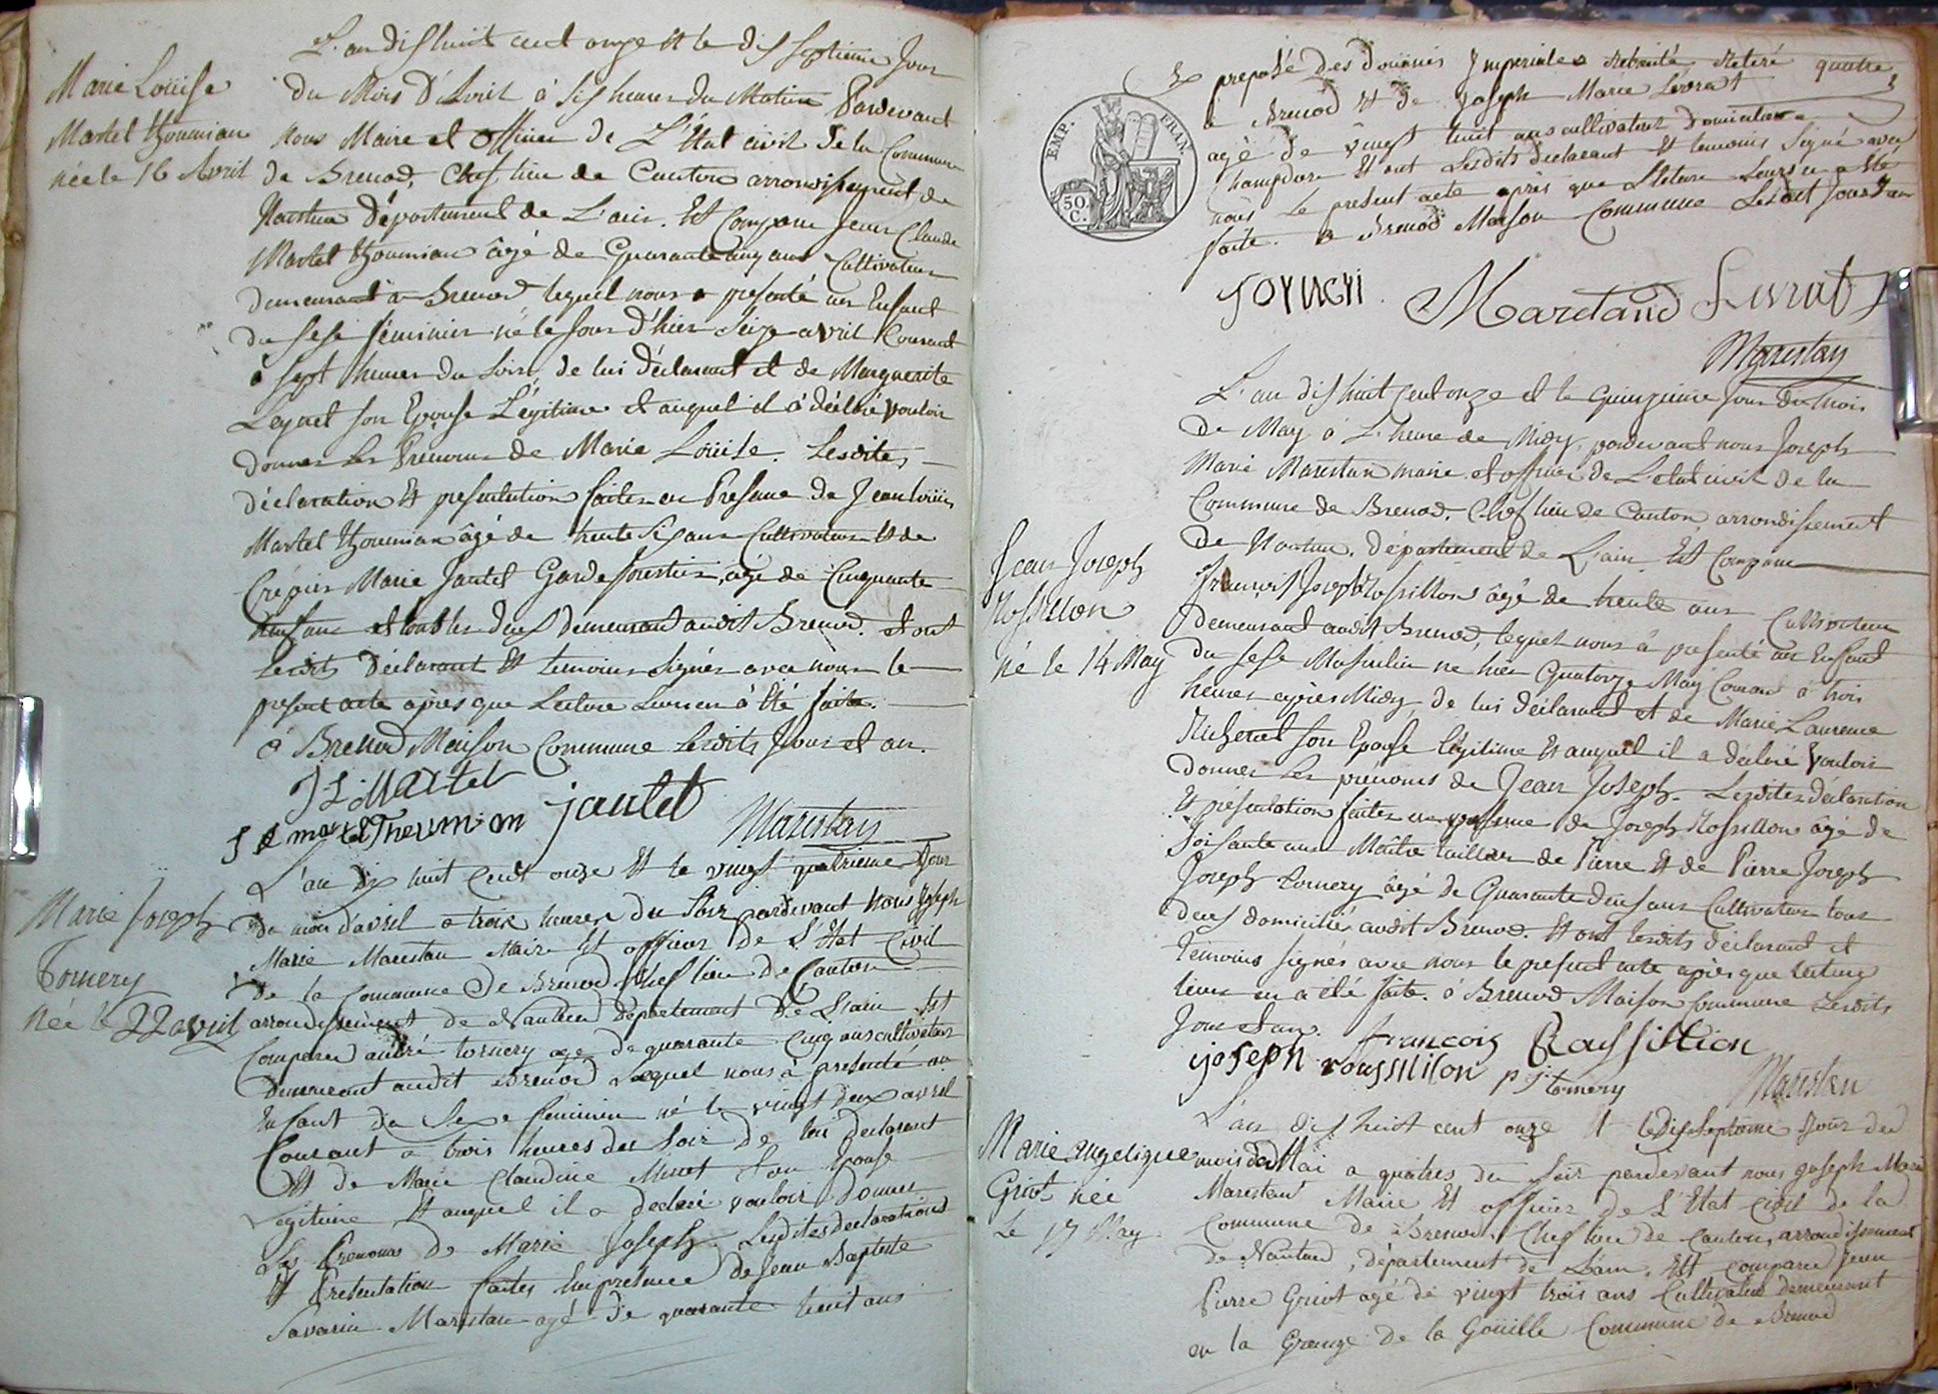 L'an dix huit cent onze et le dix septieme Jour
Marie Loüise
Martel thoumian
née le 16 Avril
du Mois d'Avril à six heures du Matin Pardevant
Nous Maire et officier de L'Etat civil de la Commune
de Brenod, Chef lieu de Canton arrondissement de
Nantua Département de L'ain. Est Comparu Jean Claude
Martel thoumian âgé de Quarante cinq ans Cultivateur
demeurant a Brenod lequel nous a presenté un Enfant
du sexe féminin né le Jour d'hier seize avril Courant
à sept heures du soir, de lui déclarant et de Marguerite
son Epouse Légitime et auquel il à déclaré vouloir
donner les Prénoms de Marie Loüise. Lesdites
déclaration et presentation faites en Presence de Jean Louis
Martel thoumian âgé de trente six ans Cultivateur et de
Marie Jantet Garde forestier, âgé de Cinquante
ans et tous les deux demeurant audit Brenod. et ont
lesdits déclarant et temoins signés avec nous le
present acte après que Lecture Leur en à été faite.
à Brenod Maison Commune lesdits Jour et an.
JL Martel
martel Theumian jantet
Marestan
L'an dix huit Cent onze et le vingt quatrieme Jour
Marie Joseph
Tornery
née le 22 avril
du mois d'avril a trois heures du Soir pardevant Nous Joseph
Marie Marestan Maire et officier de L'Etat Civil
de la Commune de Brenod Chef lieu de Canton
arrondissement de Nantua département de L'ain Est
Comparu andré tornery age de quarante cinq ans cultivateur
demeurant audit Brenod Lequel nous à presenté un
Enfant du Sexe féminin né le vingt deux avril
Courant a trois heures du Soir de lui declarant
et de Marie Claudine Minet Son Epouse
Legitime et auquel il a declaré vouloir donner
Les Prenoms de Marie Joseph. Lesdites declarations
et Presentation faites En presence de Jean Baptiste
Savarin Marestan agé de quarante huit ans
Ex preposé des Douanes Imperiales retraité
à Brenod et de Joseph Marie Levrat
agé de vingt huit ans cultivateur domicilié a
Champdor et ont Lesdits declarant et temoins signé avec
nous Le present acte après que Lecture Leur en a été
faite. a Brenod Maison Commune Lesdit Jour et an
EMP. FRAN.
50 C.
Levrat
Marestan
L'an dix huit Cent onze et le Quinzieme Jour du Mois
de May à L'heure de Midy, pardevant nous Joseph
Marie Marestan maire et officier de L'etat civil de la
Commune de Brenod, Chef lieu de Canton, arrondissement
de Nantua, département de L'ain Est Comparu
Jean Joseph
Rossillon
né le 14 May
François Joseph Rossillon âgé de trente ans Cultivateur
demeurant audit Brenod, lequel nous à presenté un Enfant
du sexe Masculin né hier Quatorze May Courant à trois
heures après Midy, de lui déclarant et de Marie Laurence
son Epouse légitime et auquel il a déclaré vouloir
donner les prenoms de Jean Joseph. Lesdites déclaration
et présentation faites en presence de Joseph Rossillon âgé de
soixante ans Maître tailleur de Pierre et de Pierre Joseph
Joseph tornery âgé de Quarante deux ans Cultivateur tous
deux domiciliés audit Brenod. et ont lesdits déclarant et
témoins signés avec nous le present acte après que lecture
leur en a été faite. à Brenod Maison Commune Lesdits
Jour et an.
francois Rossillion
joseph roussillion
pJ tornery
Marestan
L'an dix huit cent onze et le Dix Septieme Jour du
Marie angelique
Griot née
Le 17 May
mois de Mai a quatres du Soir pardevant nous Joseph Marie
Marestan Maire et officier de L'Etat Civil de la
Commune de Brenod, Chef lieu de Canton, arrondissement
de Nantua, département de L'ain. Est comparu Jean
Pierre Griot agé de vingt trois ans Cultivateur demeurant
en la Grange de la Goüille Commune de Brenod